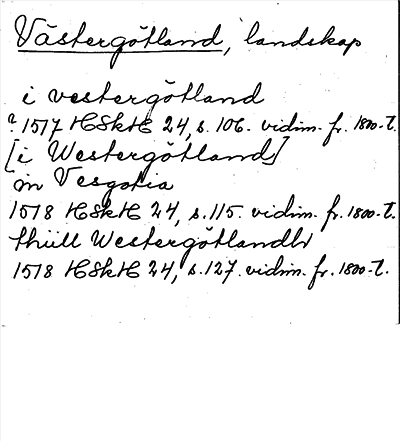 Västergötland, landskap
i vestergötland
? 1517 HSkH 24, s. 106. vidim. fr. 1800-t.
[i Westergötland]
in Vesgotia
1518 HSkH 24, s. 115. vidim. fr. 1800-t.
thiill Westergötlandh
1518 HSkH 24, s. 127. vidim. fr. 1800-t.